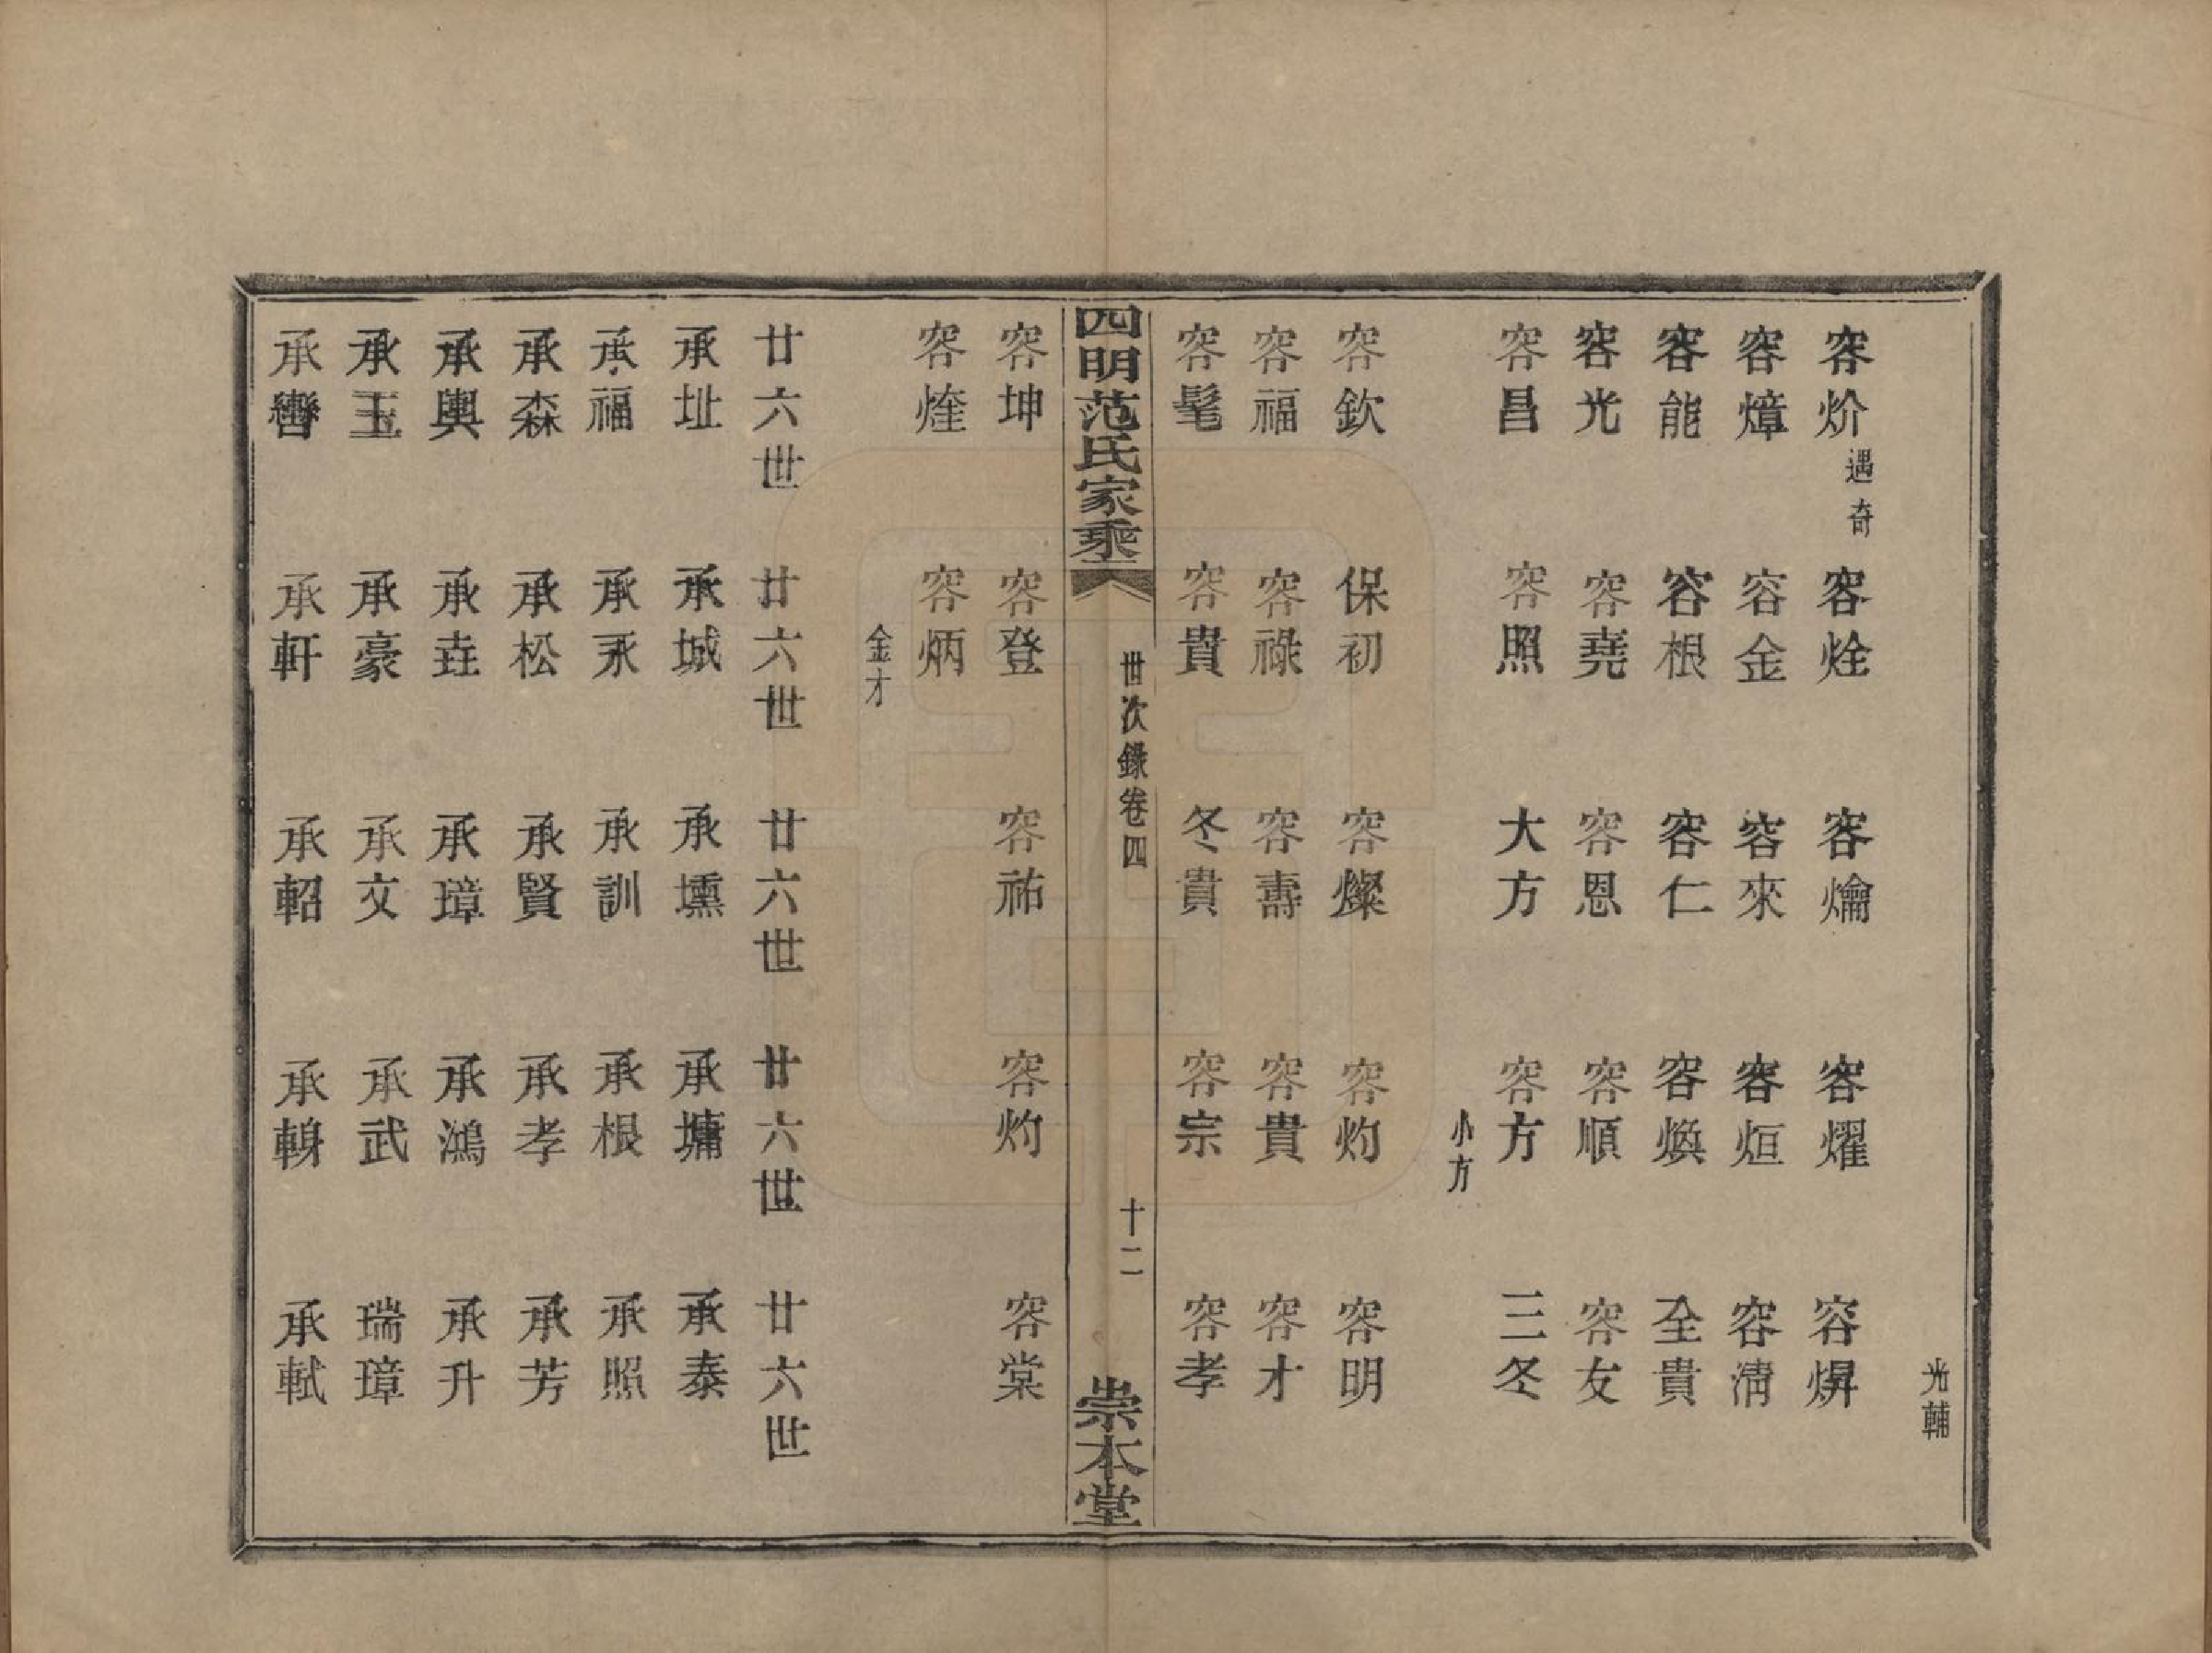 光輔
容炌 遇奇 容烇 容爚 容燿 容焺
容煒 容金 容來 容烜 容淸
容能 容根 容仁 容煥 全貴
容光 容堯 容恩 容順 容友
容昌 容照 大方 容方 三冬
小方
容欽 保初 容燦 容灼 容明
容福 容祿 容壽 容貴 容才
容髦 容貴 冬貴 容宗 容孝
四明范氏家乘 世次錄卷四 十二 崇本堂
容坤 容登 容祐 容灼 容棠
容煃 容炳
金才
廿六世 廿六世 廿六世 廿六世 廿六世
承址 承城 承壎 承墉 承泰
承福 承永 承訓 承根 承照
承森 承松 承賢 承孝 承芳
承輿 承垚 承璋 承鴻 承升
承玉 承豪 承文 承武 瑞璋
承轡 承軒 承軺 承 承軾